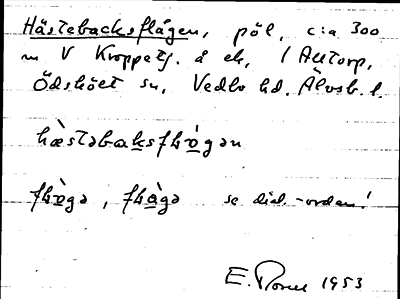 Hästebacksflågen, pöl, c:a 300
m V Kroppetj. å ek, 1 Alltorp,
Ödskölt sn, Vedbo hd. Älvsb. l.
hæ̀stəbaksflógən
flògə, flàgə se dial.-orden!
E. 1953